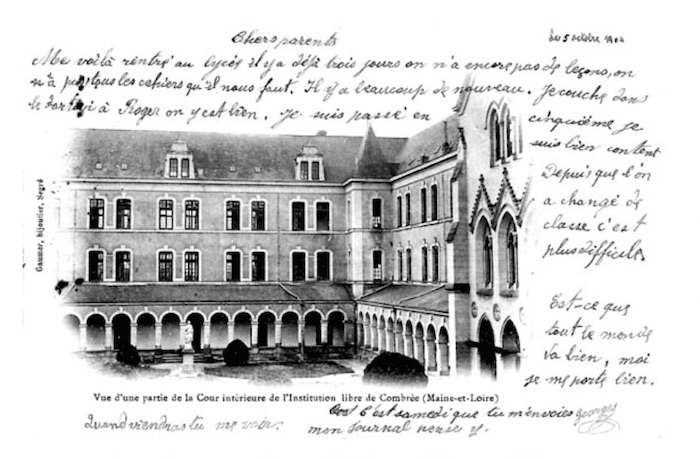 Chers parents
Le 5 octobre 1904
Me voilà rentré au lycée il y a déjà trois jours on n'a encore pas de leçons, on
n'a pas tous les cahiers qu'il nous faut. Il y a beaucoup de nouveau. Je couche dans
le à Roger on y est bien. Je suis passé en
cinquième je
suis bien content
Depuis que l'on
a changé de
classe c'est
plus difficile.
Est-ce que
tout le monde
va bien, moi
je me porte bien.
Gaumer, bijoutier, Segré
Vue d'une partie de la Cour intérieure de l'Institution libre de Combrée (Maine-et-Loire)
Quand viendras tu me voir.
C'est samedi que tu m'envoies
mon Journal